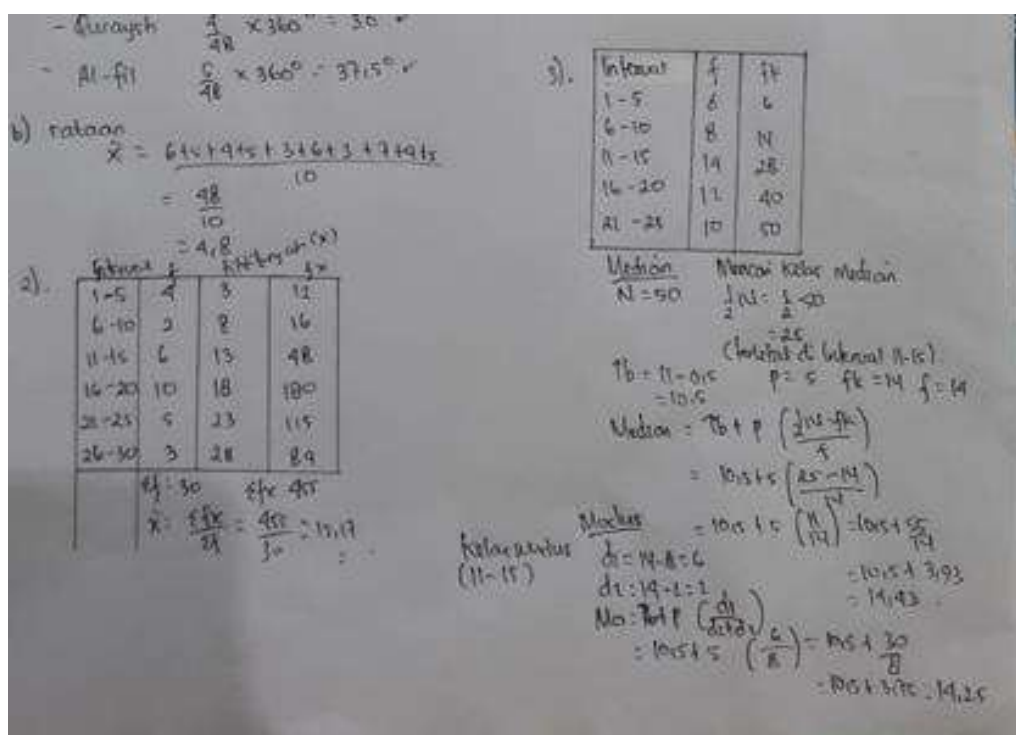 - Quraysh 4/48 x 360° = 30 ✓
- Al-fil 5/48 x 360° = 37,5° ✓
b) rataan
x̄ = 6+5+4+5+3+6+3+7+4+5
10
= 48/10
= 4,8
2).
Interval f (x) fx
1-5 4 3 12
6-10 2 8 16
11-15 6 13 48
16-20 10 18 180
21-25 5 23 115
26-30 3 28 84
Σf = 30 Σfx 455
x̄ = Σfx/Σf = 455/30 = 15,17
3).
Interval f fk
1-5 6 6
6-10 8 14
11-15 14 28
16-20 12 40
21-25 10 50
Median Mencari kelas median
N = 50 1/2 N = 1/2 50
= 25
(terletak di interval 11-15)
Tb = 11-0,5 p = 5 fk = 14 f = 14
= 10,5
Median = Tb + p (1/2N - fk / f)
= 10,5+5 (25-14 / 14)
= 10,5 + 5 (11/14) = 10,5 + 55/14
= 10,5 + 3,93
= 14,43
Modus
Kelas modus
(11-15)
d1 = 14-8 = 6
d2 = 14-2 = 2
Mo = Tb + p (d1 / d1+d2)
= 10,5+5 (6/8) = 10,5 + 30/8
= 10,5 + 3,75 = 14,25